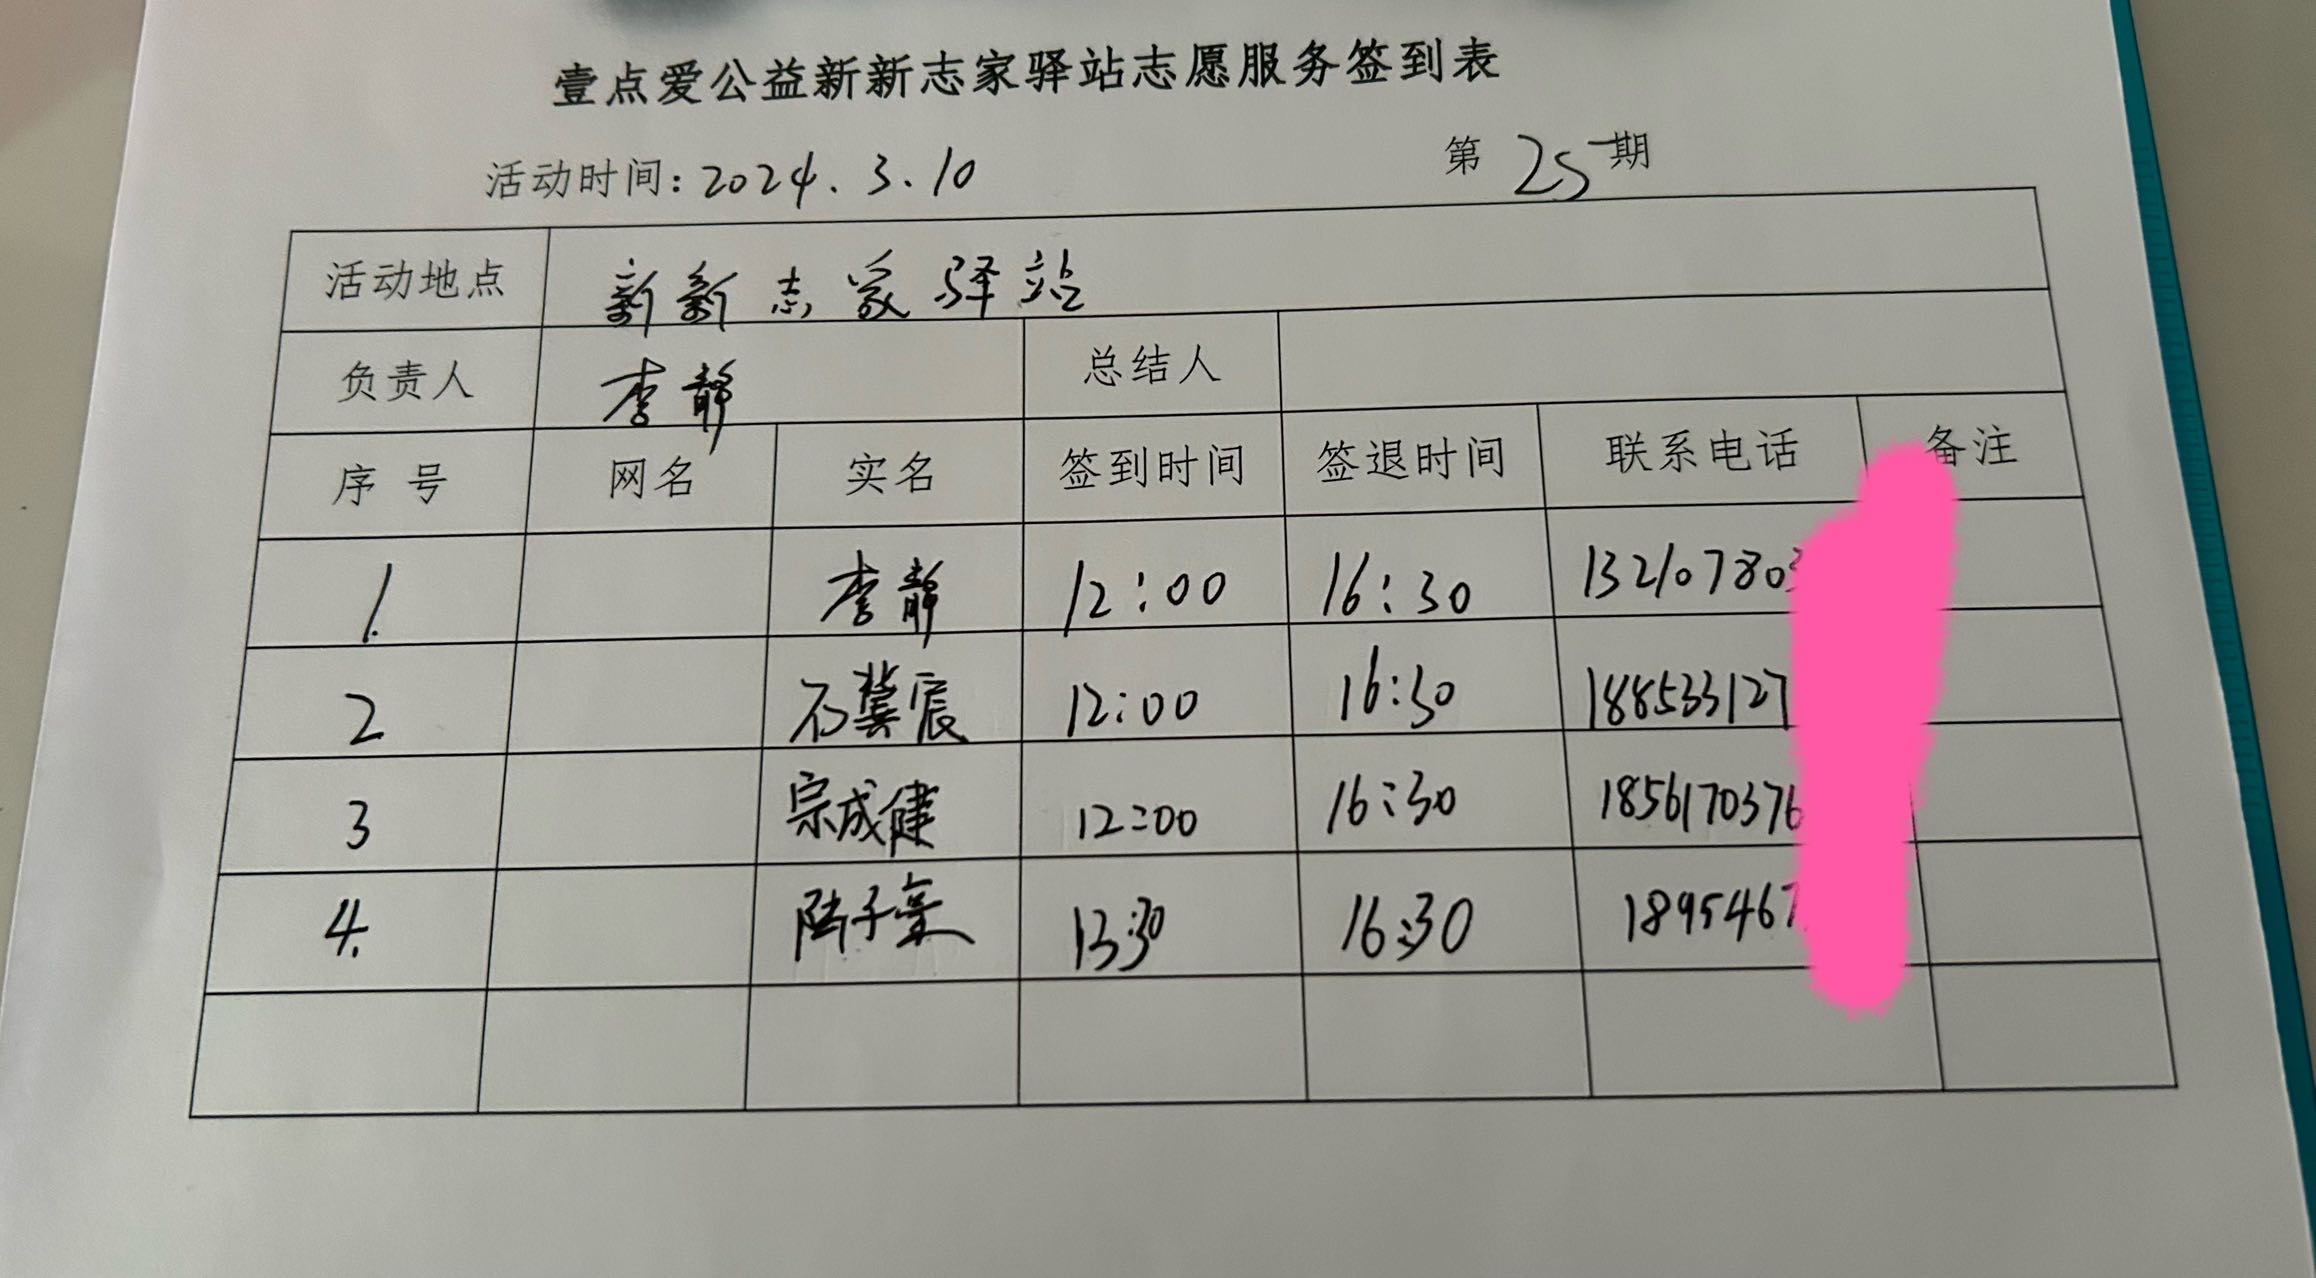 壹点爱公益新新志家驿站志愿服务签到表
活动时间：2024.3.10 第25期
活动地点 新新志家驿站
负责人 李静 总结人
序号 网名 实名 签到时间 签退时间 联系电话 备注
1. 李静 12:00 16:30 13210780
2 石冀宸 12:00 16:30 188533127
3 宗成健 12:00 16:30 1856170376
4. 陆子豪 13:30 16:30 1895467